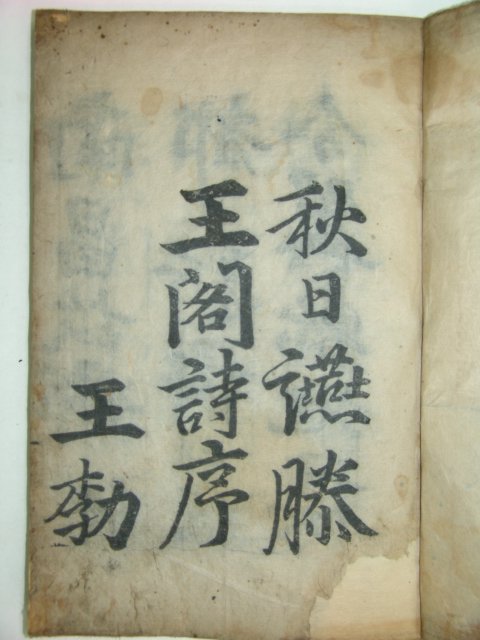 秋日讌滕
王阁詩序
王勃